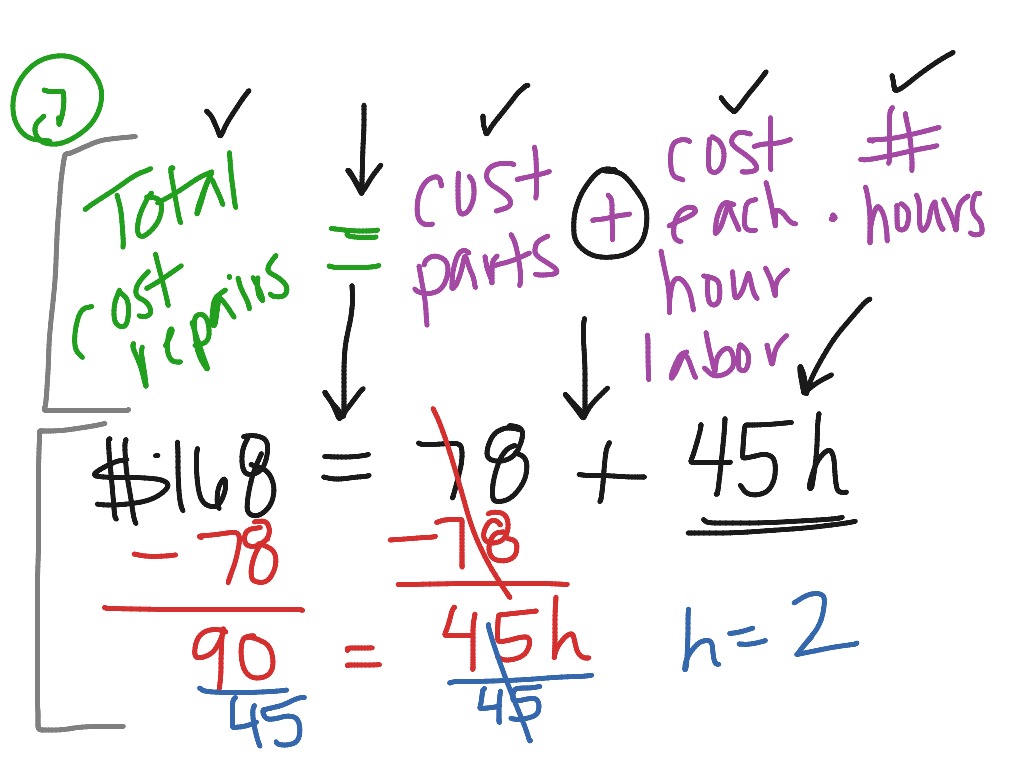 7
Total cost repairs = cost parts + cost each hour labor · # hours
$168 = 78 + 45h
- 78 - 78
90 = 45h
45 45
h = 2